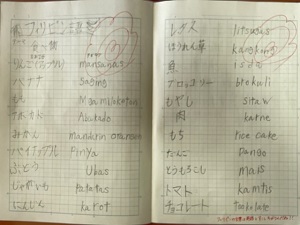 フィリピン語
食べ物
りんご(アップル) mansanas
バナナ Saging
もも
アボカド Abukado
みかん Mandarin
パイナップル Pinya
ぶどう Ubas
じゃがいも Patatas
にんじん karot
レタス litsugas
ほうれん草 kangkong
魚 isda
ブロッコリー brokuli
もやし sitaw
肉 karne
もち rice cake
だんご Dango
とうもろこし mais
トマト kamtis
チョコレート tsokolate